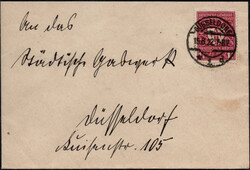 An das
Städtische Gaswerk
Düsseldorf
Luisenstr. 105